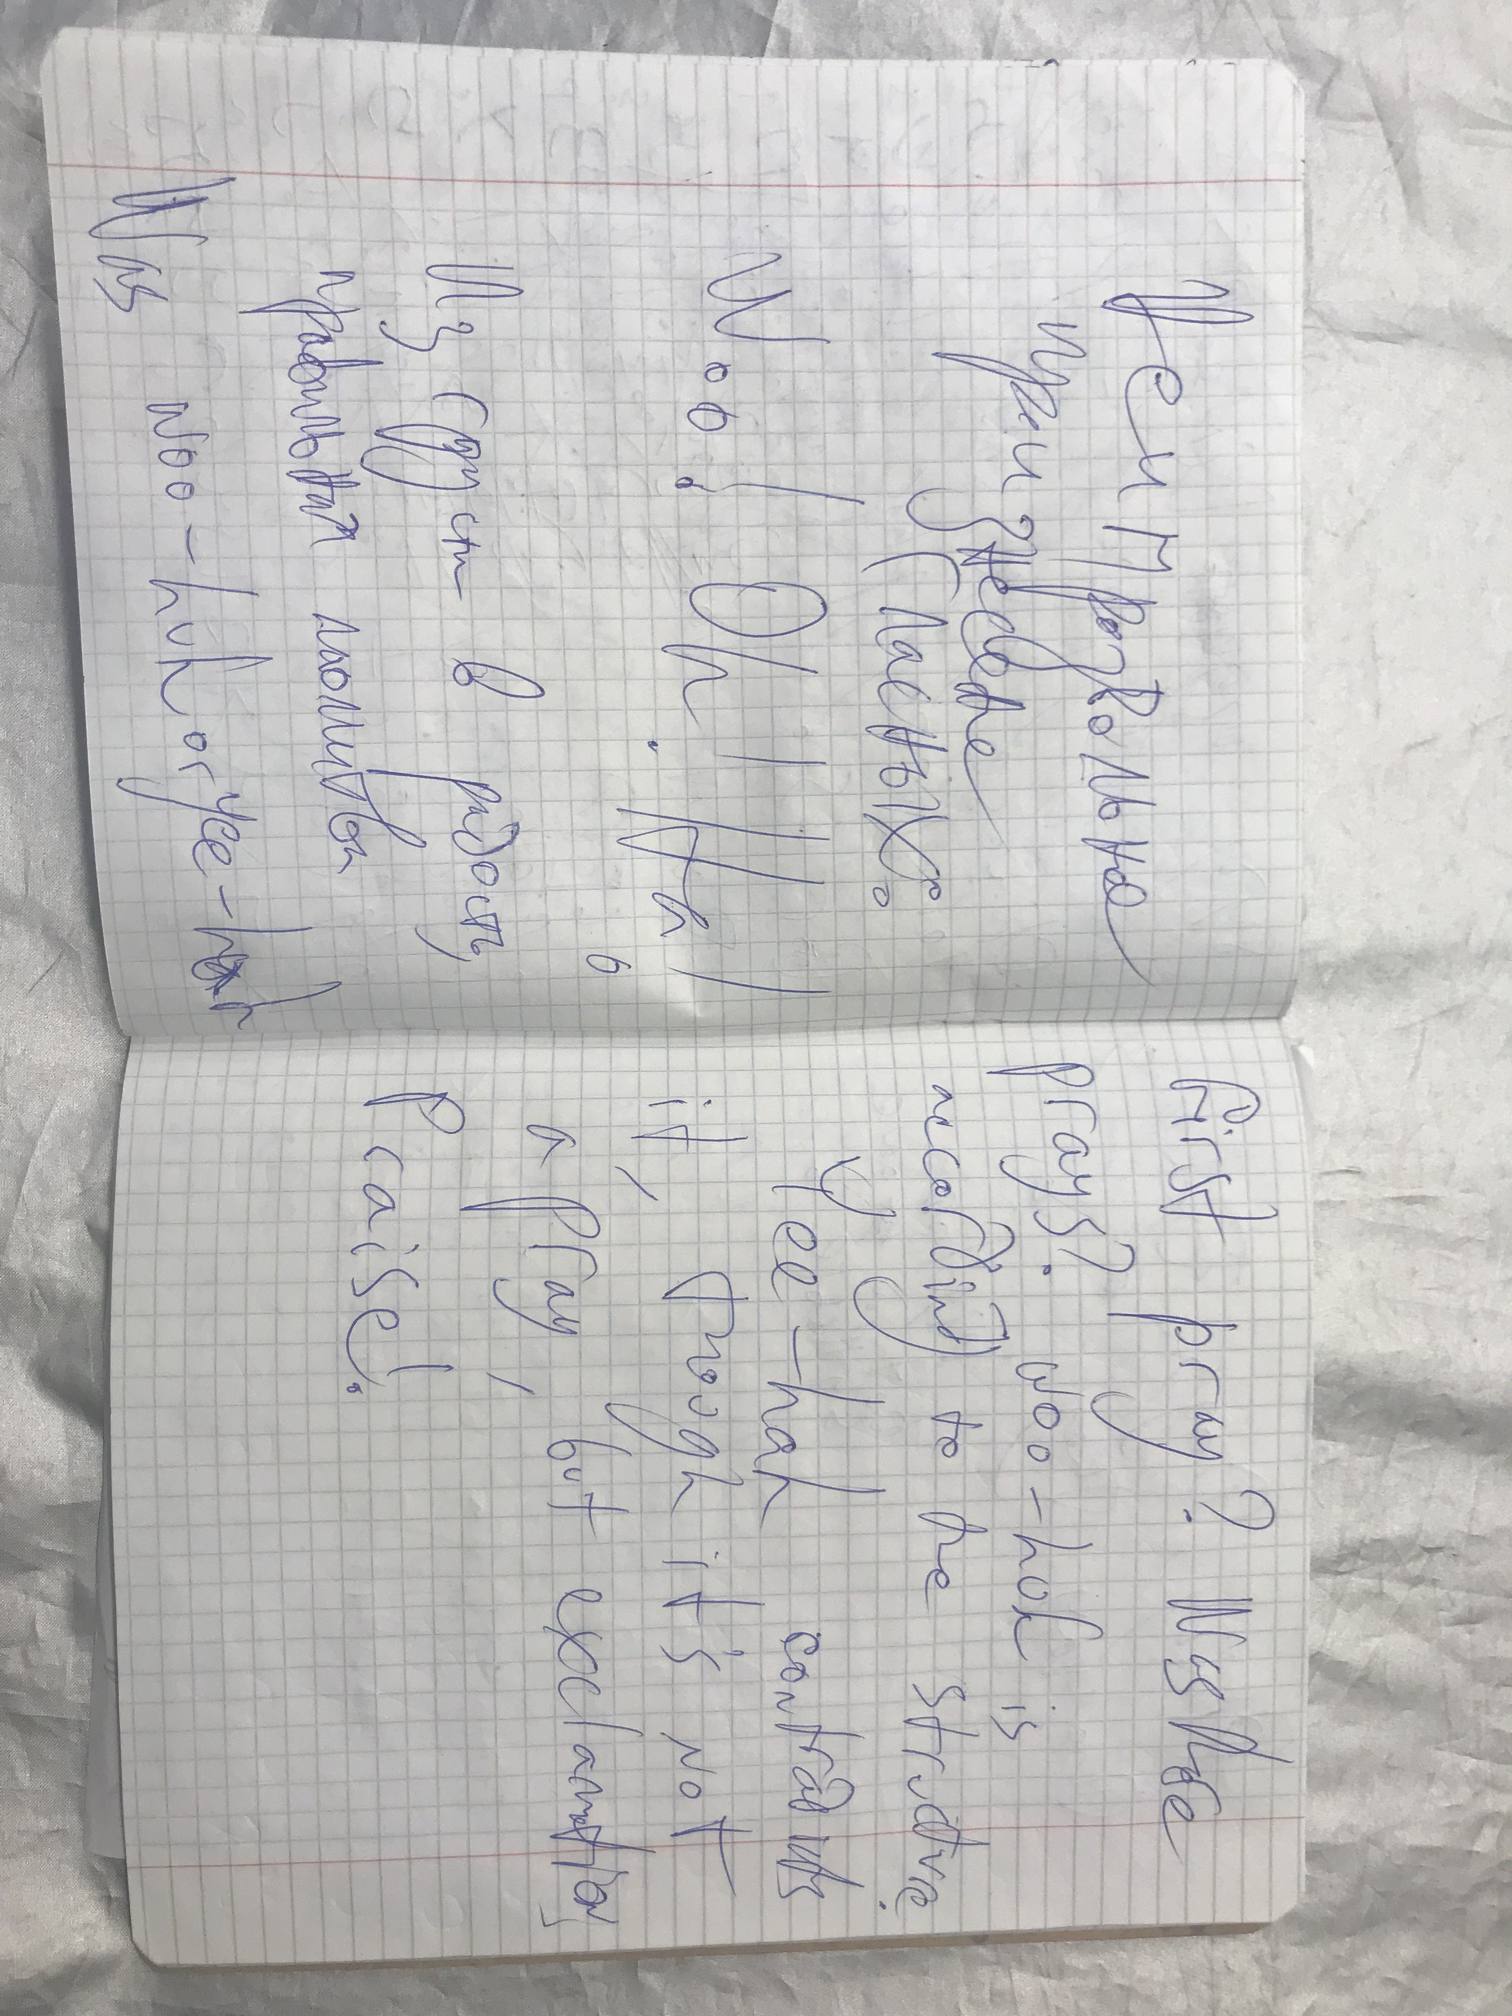 Непроизвольное
произнесение
гласных:
Woo! Oh! Ah!
Из грусти в радость,
правильная молитва
Was woo-huh or yee-hah
first pray? Was there
prays? Woo-hoh is
according to the structure.
Yee-hah contraduts
it, though it's not
a pray, but exclamation,
Praise!